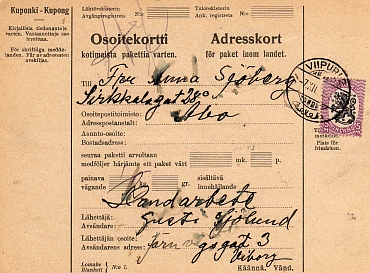 Kuponki - Kupong
Kirjallisia tiedonantoja
varten. Vastaanottaja saa
irroittaa.
För skriftliga medde-
landen. Får av adressaten
avskiljas.
Lähtörekisterin
Avgångsregistrets
Tulorekisterin
Ank. registrets
Osoitekortti
kotimaista pakettia varten.
Adresskort
för paket inom landet.
Till Fru Anna Sjöberg
Sirkkalagat
Åbo
Osoitepostitoimisto:
Adresspostanstalt:
Asunto-osoite:
Bostadsadress:
seuraa paketti arvoltaan
medföljer härjämte ett paket värt
mk
painava
vägande
kg
gr.
sisältävä
innehållande
Handarbete
Lähettäjä:
Avsändare:
Gusti Sjölund
Lähettäjän osoite:
Avsändarens adress:
3
Viborg
Lomake
Blankett
N:o 1.
Käännä. Vänd.
VIIPURI
Plats för
frimärken.